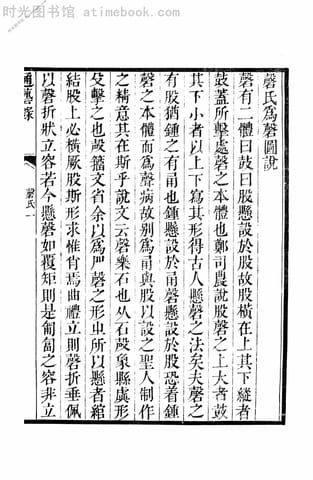 时光图书馆 — atimebook.com
磬氏爲磬圖說
磬有二體曰鼓曰股懸設於股故股橫在上其下縱者
鼓蓋所擊處磬之本體也鄭司農說股磬之上大者鼓
其下小者以上下寫其形得古人懸磬之法矣夫磬之
有股猶鍾之有甬也鍾懸設於甬磬懸設於股恐着鍾
磬之本體而爲聲病故别爲甬與股以設之聖人制作
之精意其在斯乎說文云磬樂石也从石殸象縣虡形
殳擊之也殸籒文省余以爲声磬之形屮所以懸者綰
結股上必橫厥股斯形求惟肖焉曲禮立則磬折垂佩
以磬折狀立容若今懸磬如覆矩則是匍匐之容非立
通藝錄
磬氏
一